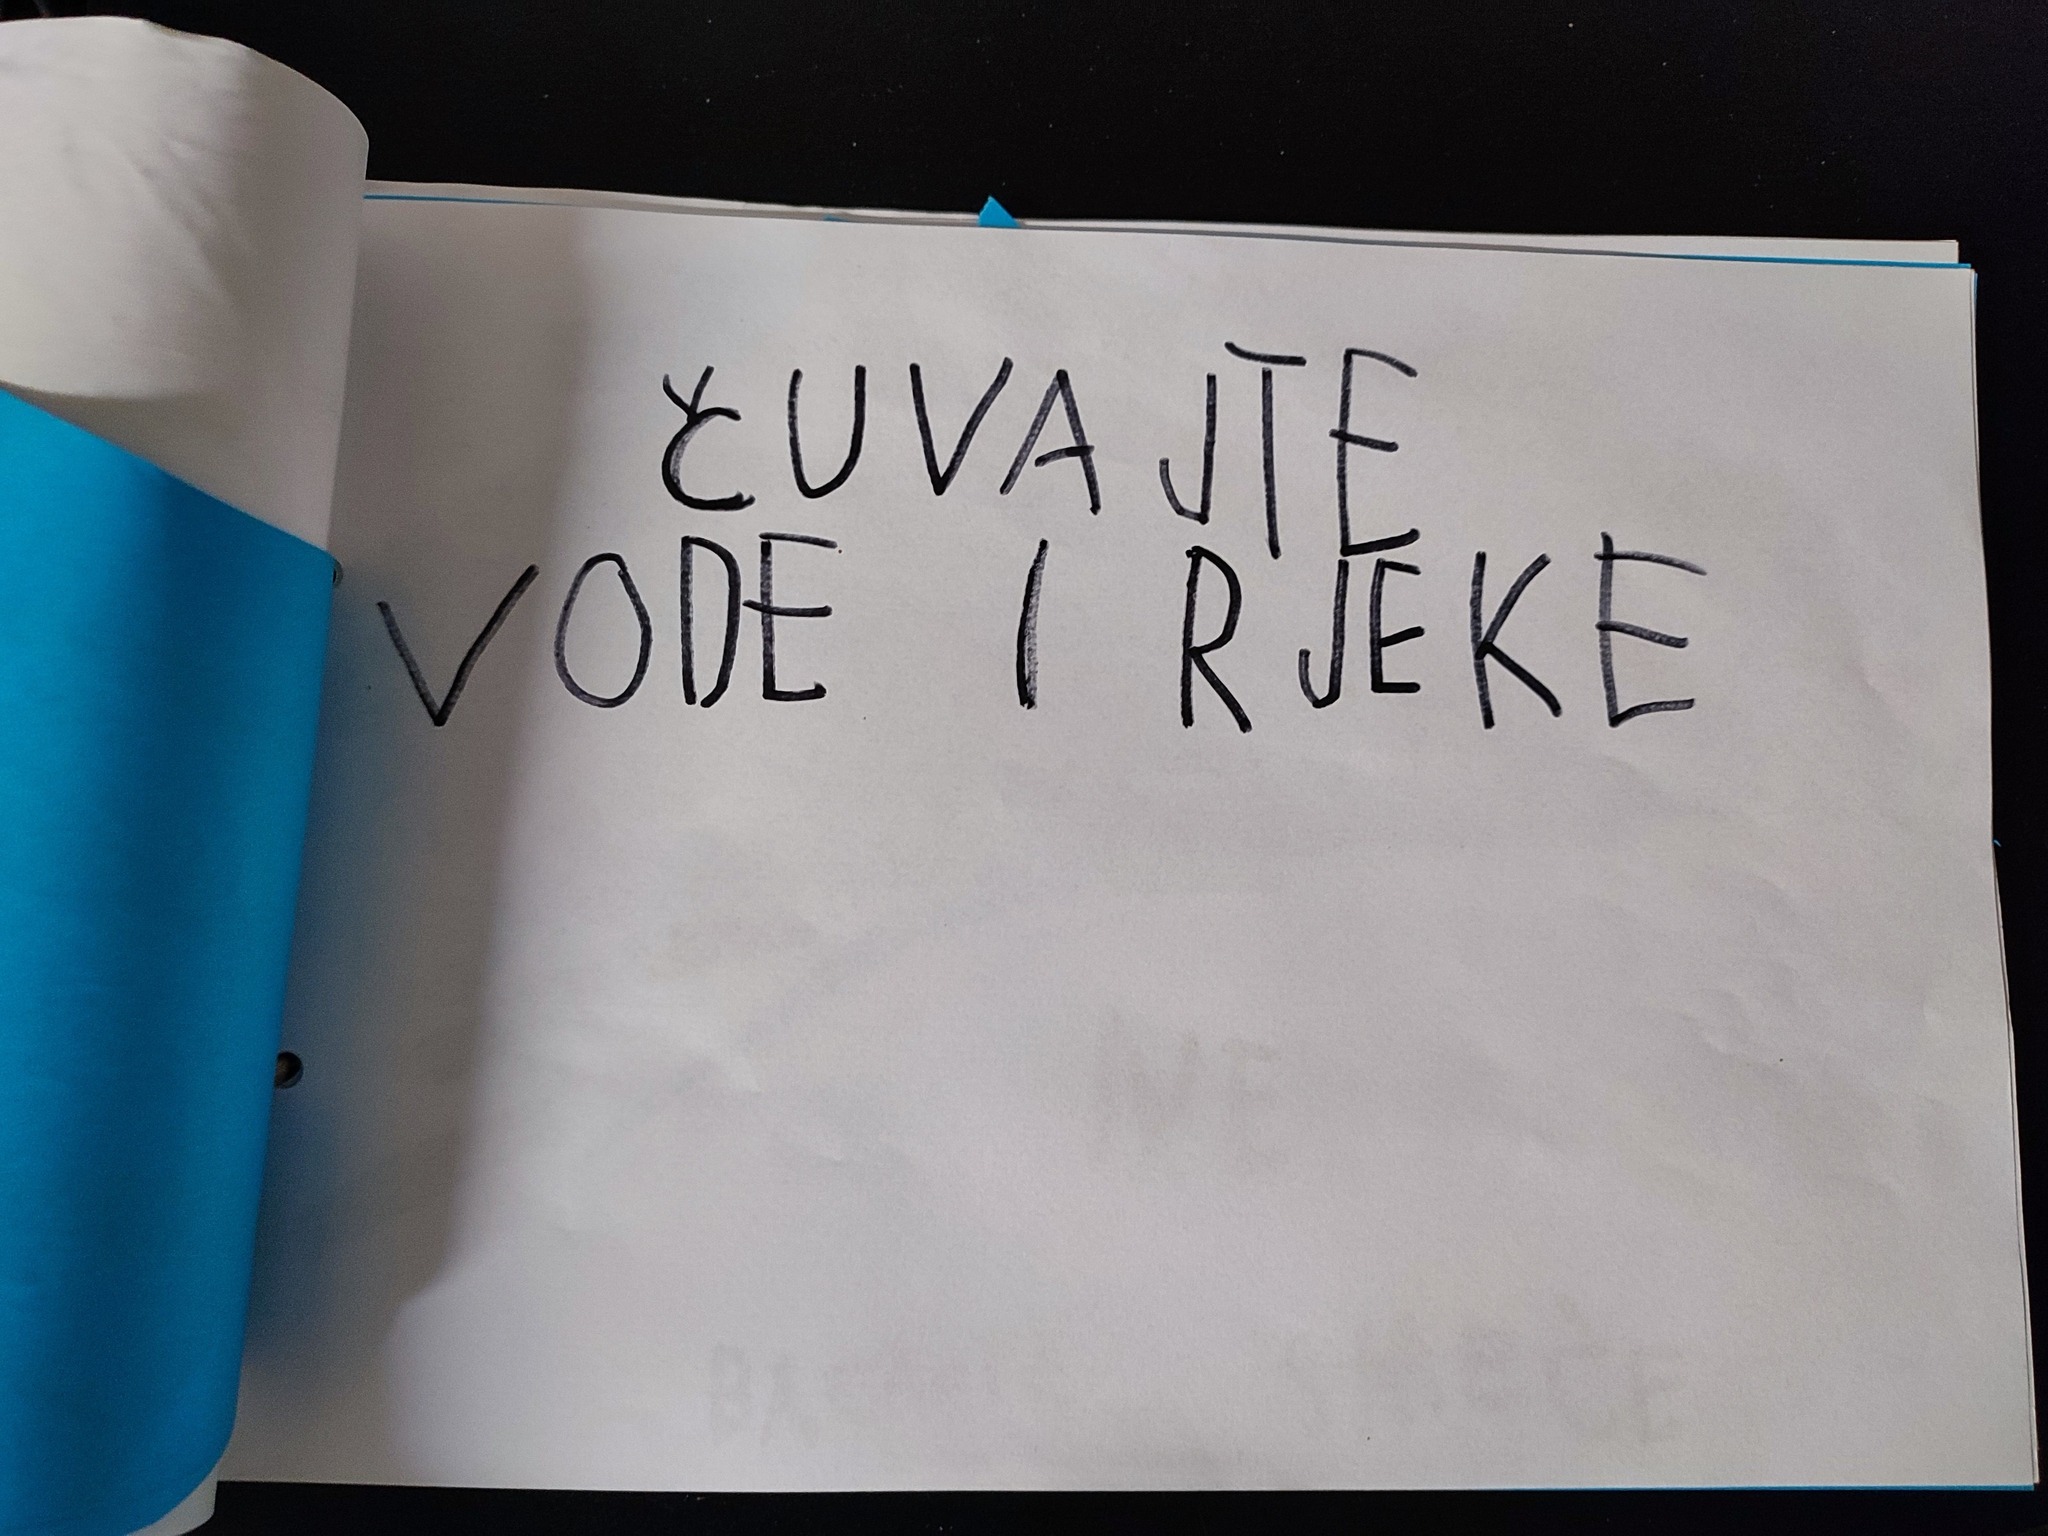 ČUVAJTE
VODE I RJEKE